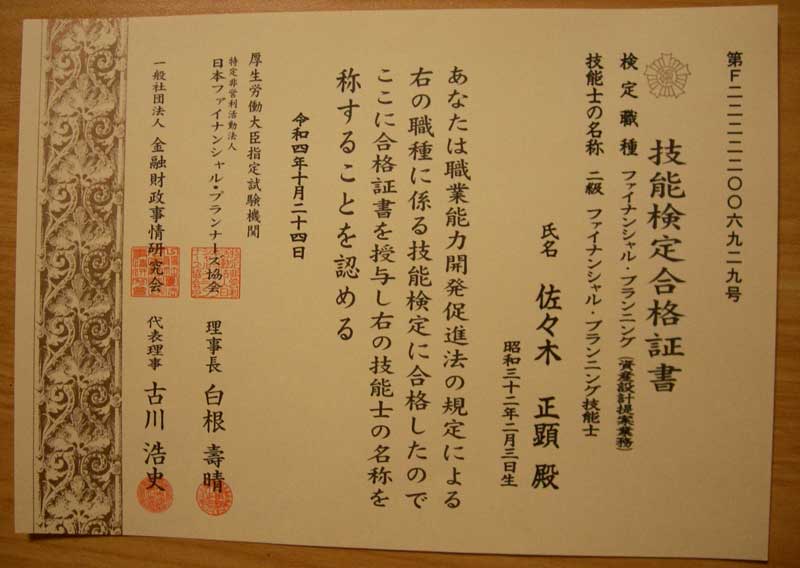 第F二二二二二〇〇六九二九号
技能検定合格証書
検定職種 ファイナンシャル・プランニング(資産設計提案業務)
技能士の名称 二級 ファイナンシャル・プランニング技能士
氏名 佐々木 正顕 殿
昭和三十二年二月三日生
あなたは職業能力開発促進法の規定による
右の職種に係る技能検定に合格したので
ここに合格証書を授与し右の技能士の名称を
称することを認める
令和四年十月二十四日
厚生労働大臣指定試験機関
特定非営利活動法人
日本ファイナンシャル・プランナーズ協会 理事長 白根 壽晴
一般社団法人 金融財政事情研究会 代表理事 古川 浩史